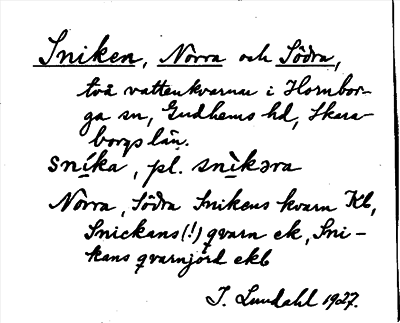 Sniken, Norra och Södra,
två vattenkvarnar i Hornbor-
ga sn, Gudhems hd, Skara-
borgs län.
sníka, pl. snìkəra
Norra, Södra Snikens kvarn Kb,
Snickans (!) qvarn ek, Sni-
kans qvarnjord ekb
I. Lundahl 1927.